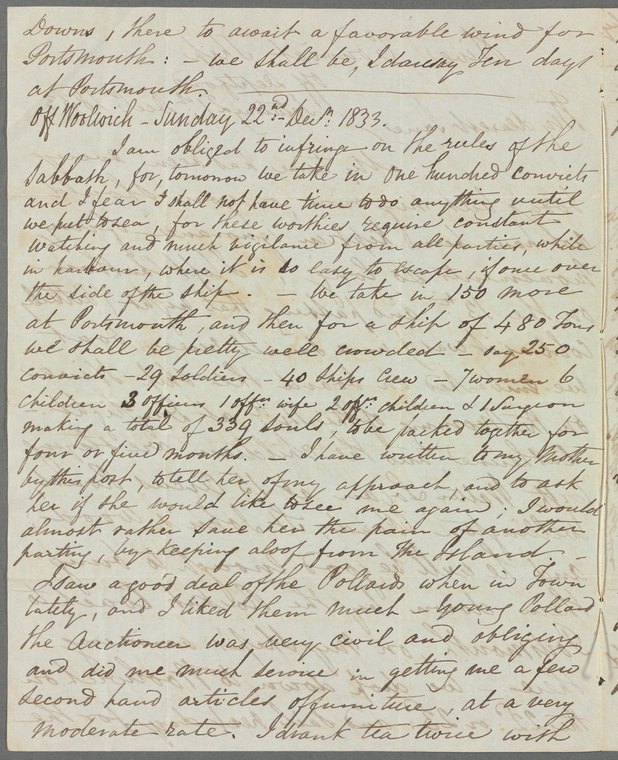 Downs, there to await a favorable wind for
Portsmouth: - we shall be, I daresay Ten days
at Portsmouth.
Off Woolwich - Sunday 22nd Decr. 1833.
I am obliged to infringe on the rules of the
Sabbath, for, tomorrow we take in One hundred convicts
and I fear I shall not have time to do anything until
we put to sea, for these worthies require constant
watching and much vigilance from all parties, while
in harbour, where it is so easy to escape, if once over
the side of the ship. - We take in 150 more
at Portsmouth, and then for a ship of 480 Tons
we shall be pretty well crowded - say 250
convicts - 29 Soldiers - 40 Ships Crew - 7 women 6
children 3 officers 1 offrs wife 2 offrs. children & 1 Surgeon
making a total of 339 souls, to be packed together for
four or five months. - I have written to my Mother
by this post, to tell her of my approach, and to ask
her if she would like to see me again; I would
almost rather save her the pain of another
parting, by keeping aloof from the Island -
I saw a good deal of the Pollards when in Town
lately, and I liked them much - Young Pollard
the Auctioneer was very civil and obliging
and did me much service in getting me a few
second hand articles of furniture, at a very
moderate rate. I drank tea twice with